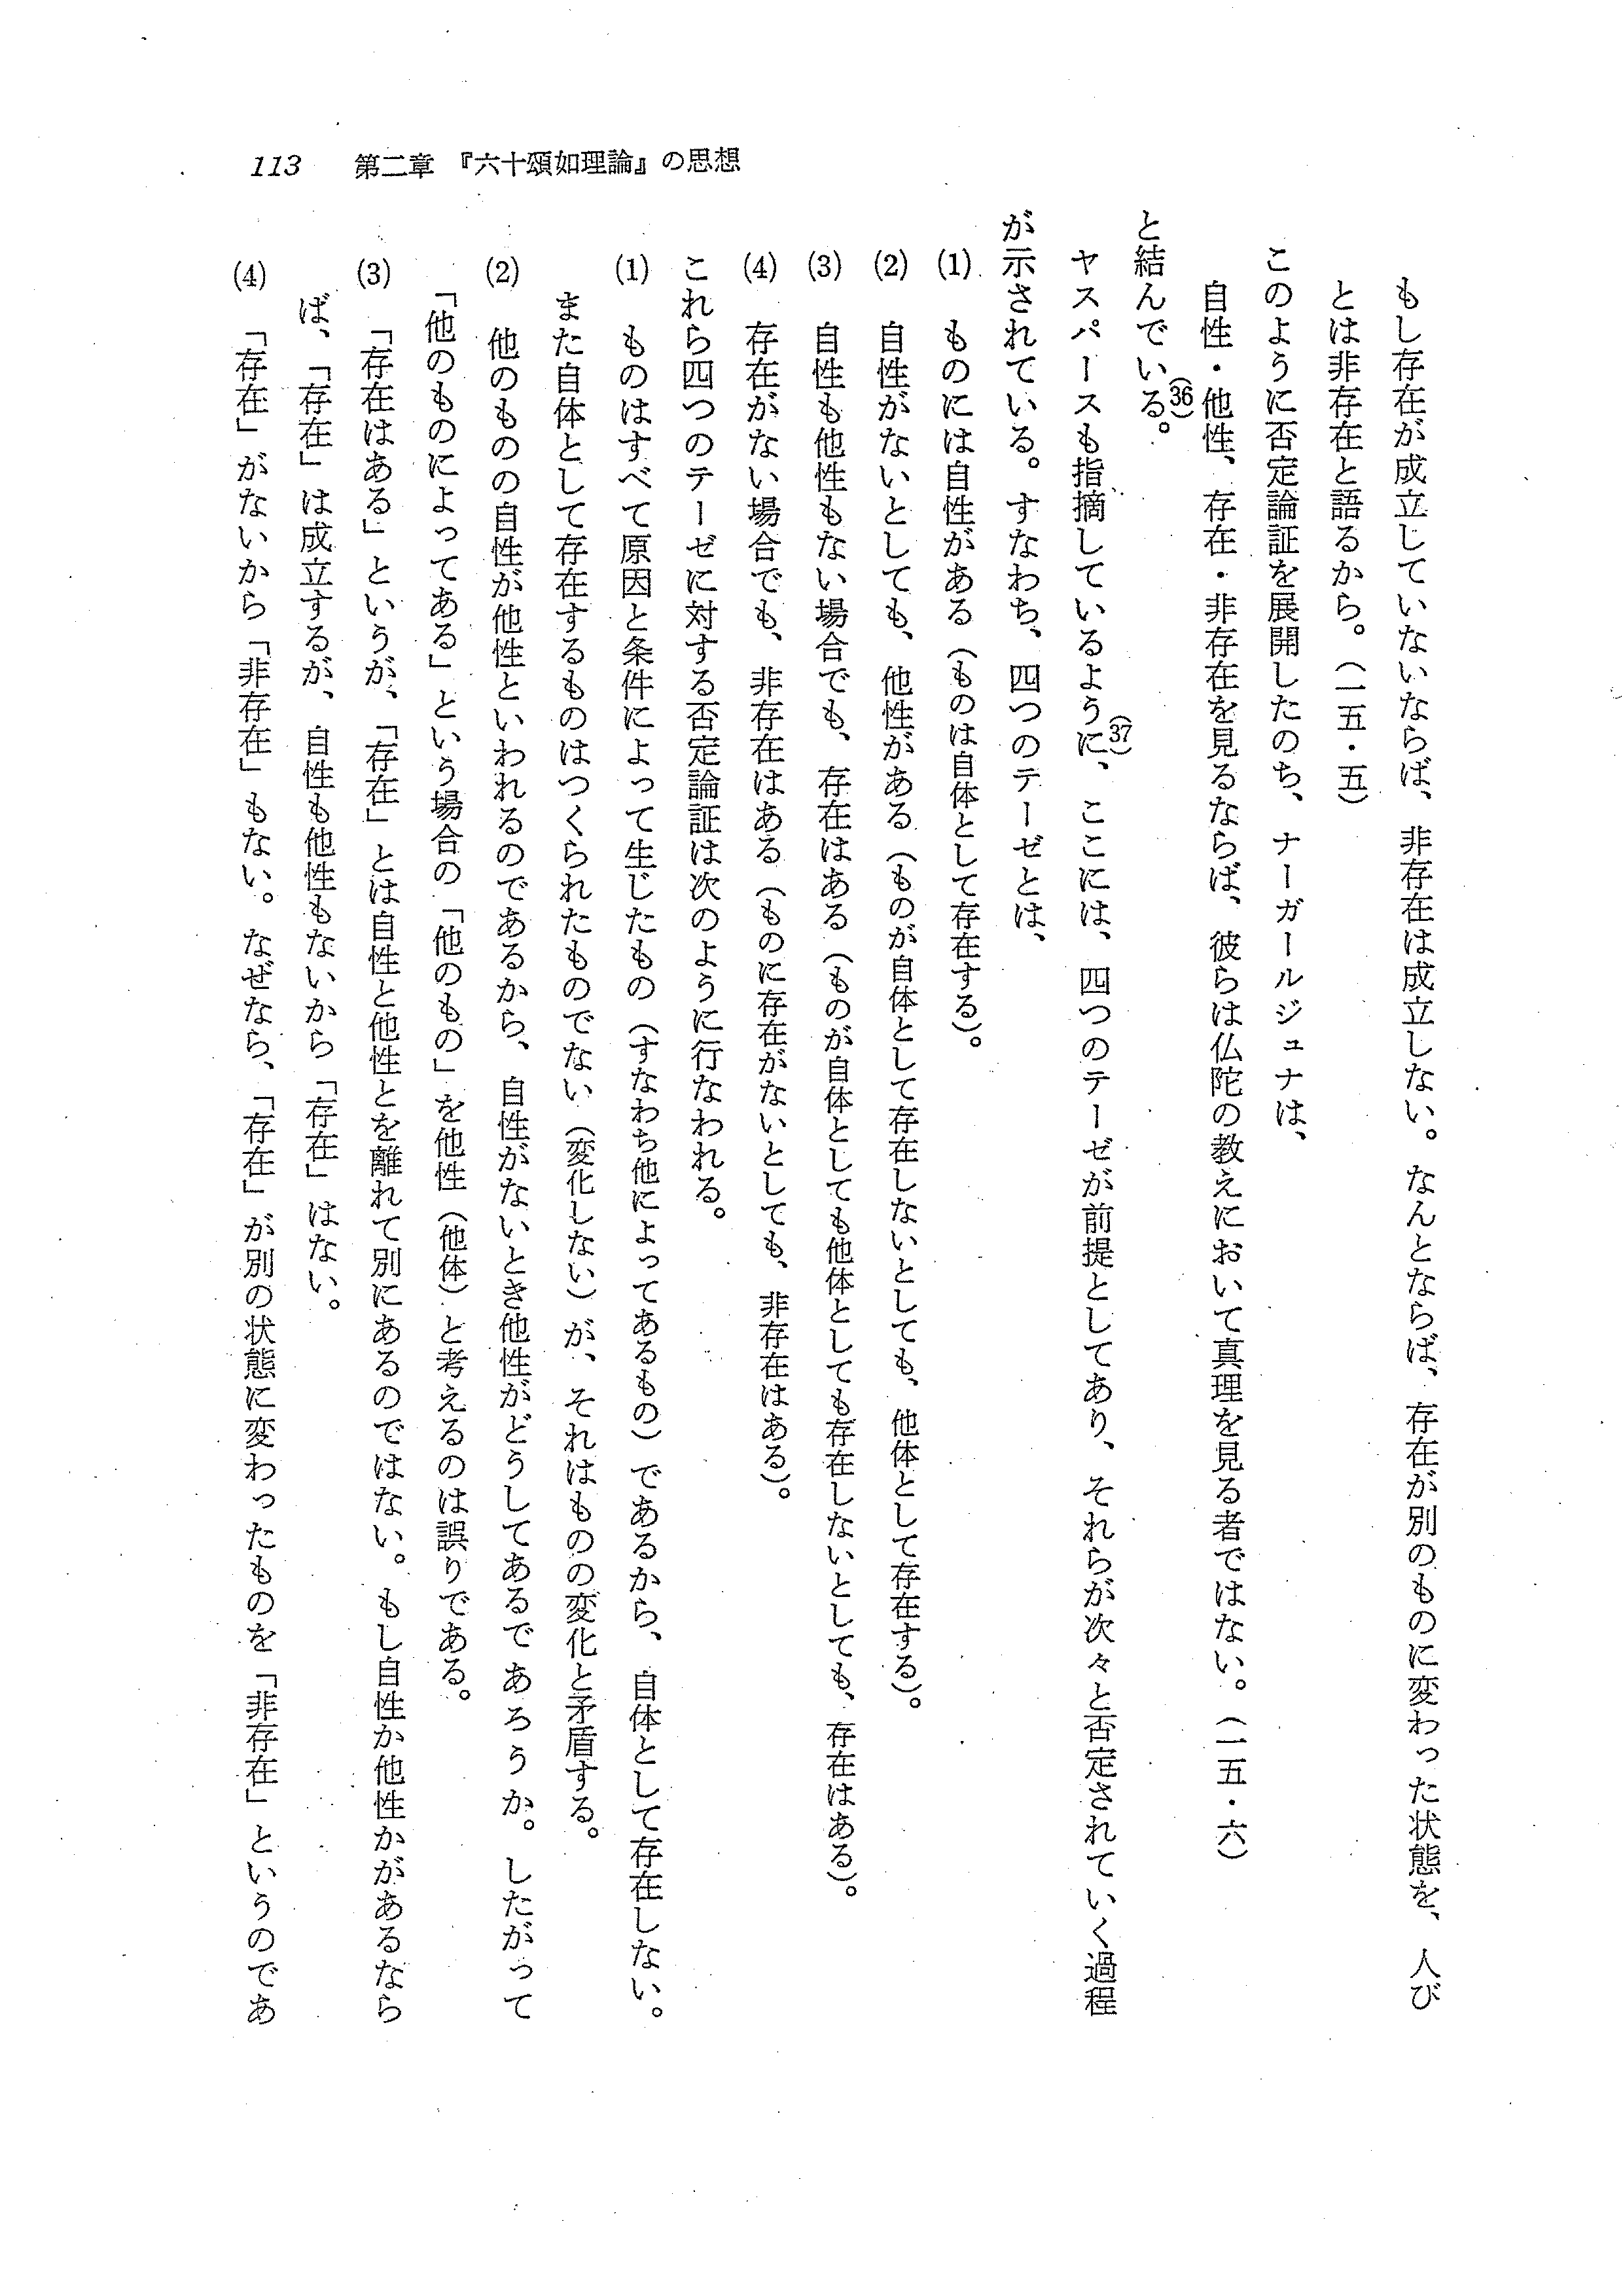 113　第二章　『六十頌如理論』の思想
もし存在が成立していないならば、非存在は成立しない。なんとならば、存在が別のものに変わった状態を、人び
とは非存在と語るから。（一五・五）
このように否定論証を展開したのち、ナーガールジュナは、
自性・他性、存在・非存在を見るならば、彼らは仏陀の教えにおいて真理を見る者ではない。（一五・六）
と結んでいる。(36)
ヤスパースも指摘しているように、(37)ここには、四つのテーゼが前提としてあり、それらが次々と否定されていく過程
が示されている。すなわち、四つのテーゼとは、
(1)　ものには自性がある（ものは自体として存在する）。
(2)　自性がないとしても、他性がある（ものが自体として存在しないとしても、他体として存在する）。
(3)　自性も他性もない場合でも、存在はある（ものが自体としても他体としても存在しないとしても、存在はある）。
(4)　存在がない場合でも、非存在はある（ものに存在がないとしても、非存在はある）。
これら四つのテーゼに対する否定論証は次のように行なわれる。
(1)　ものはすべて原因と条件によって生じたもの（すなわち他によってあるもの）であるから、自体として存在しない。
また自体として存在するものはつくられたものでない（変化しない）が、それはものの変化と矛盾する。
(2)　他のものの自性が他性といわれるのであるから、自性がないとき他性がどうしてあるであろうか。したがって
「他のものによってある」という場合の「他のもの」を他性（他体）と考えるのは誤りである。
(3)　「存在はある」というが、「存在」とは自性と他性とを離れて別にあるのではない。もし自性か他性かがあるなら
ば、「存在」は成立するが、自性も他性もないから「存在」はない。
(4)　「存在」がないから「非存在」もない。なぜなら、「存在」が別の状態に変わったものを「非存在」というのであ